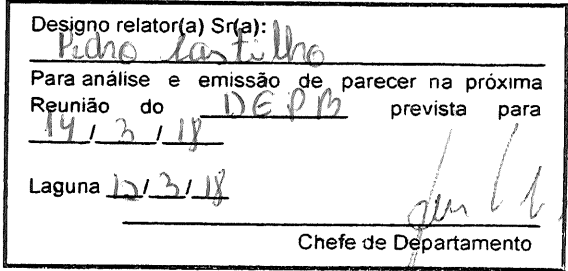 Designo relator(a) Sr(a):
Pedro Castilho
Para análise e emissão de parecer na próxima
Reunião do DEPB prevista para
14/3/18
Laguna 12/3/18
Chefe de Departamento